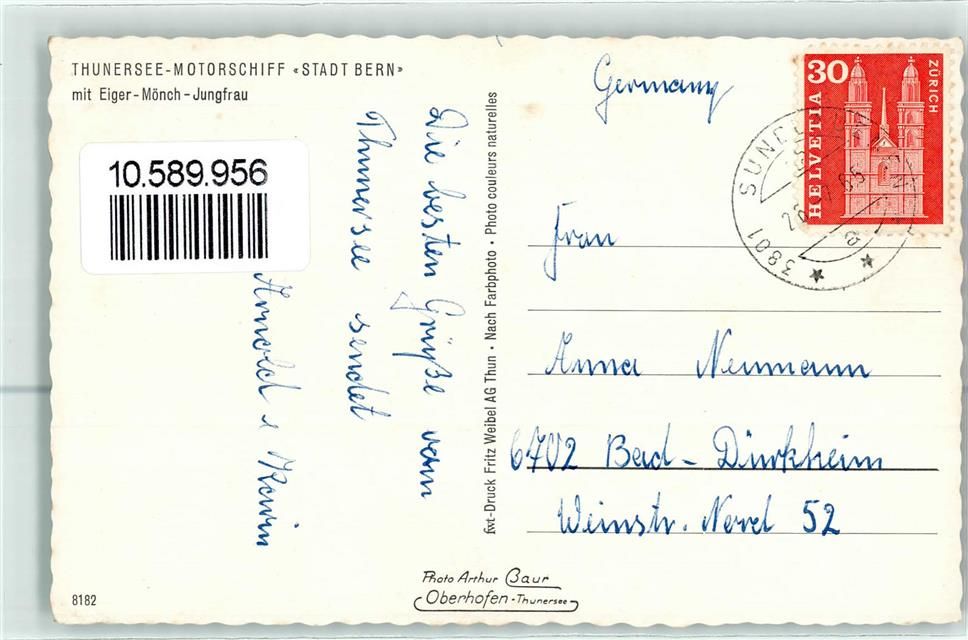 THUNERSEE-MOTORSCHIFF «STADT BERN»
mit Eiger-Mönch-Jungfrau
10.589.956
Die besten Grüße vom
Thunersee sendet
Arnold & Karin
fwt-Druck Fritz Weibel AG Thun • Nach Farbphoto • Photo couleurs naturelles
Germany
30
HELVETIA
ZÜRICH
3801
Frau
Anna Neumann
6702 Bad-Dürkheim
Weinstr. Nord 52
Photo Arthur Baur
Oberhofen-Thunersee
8182